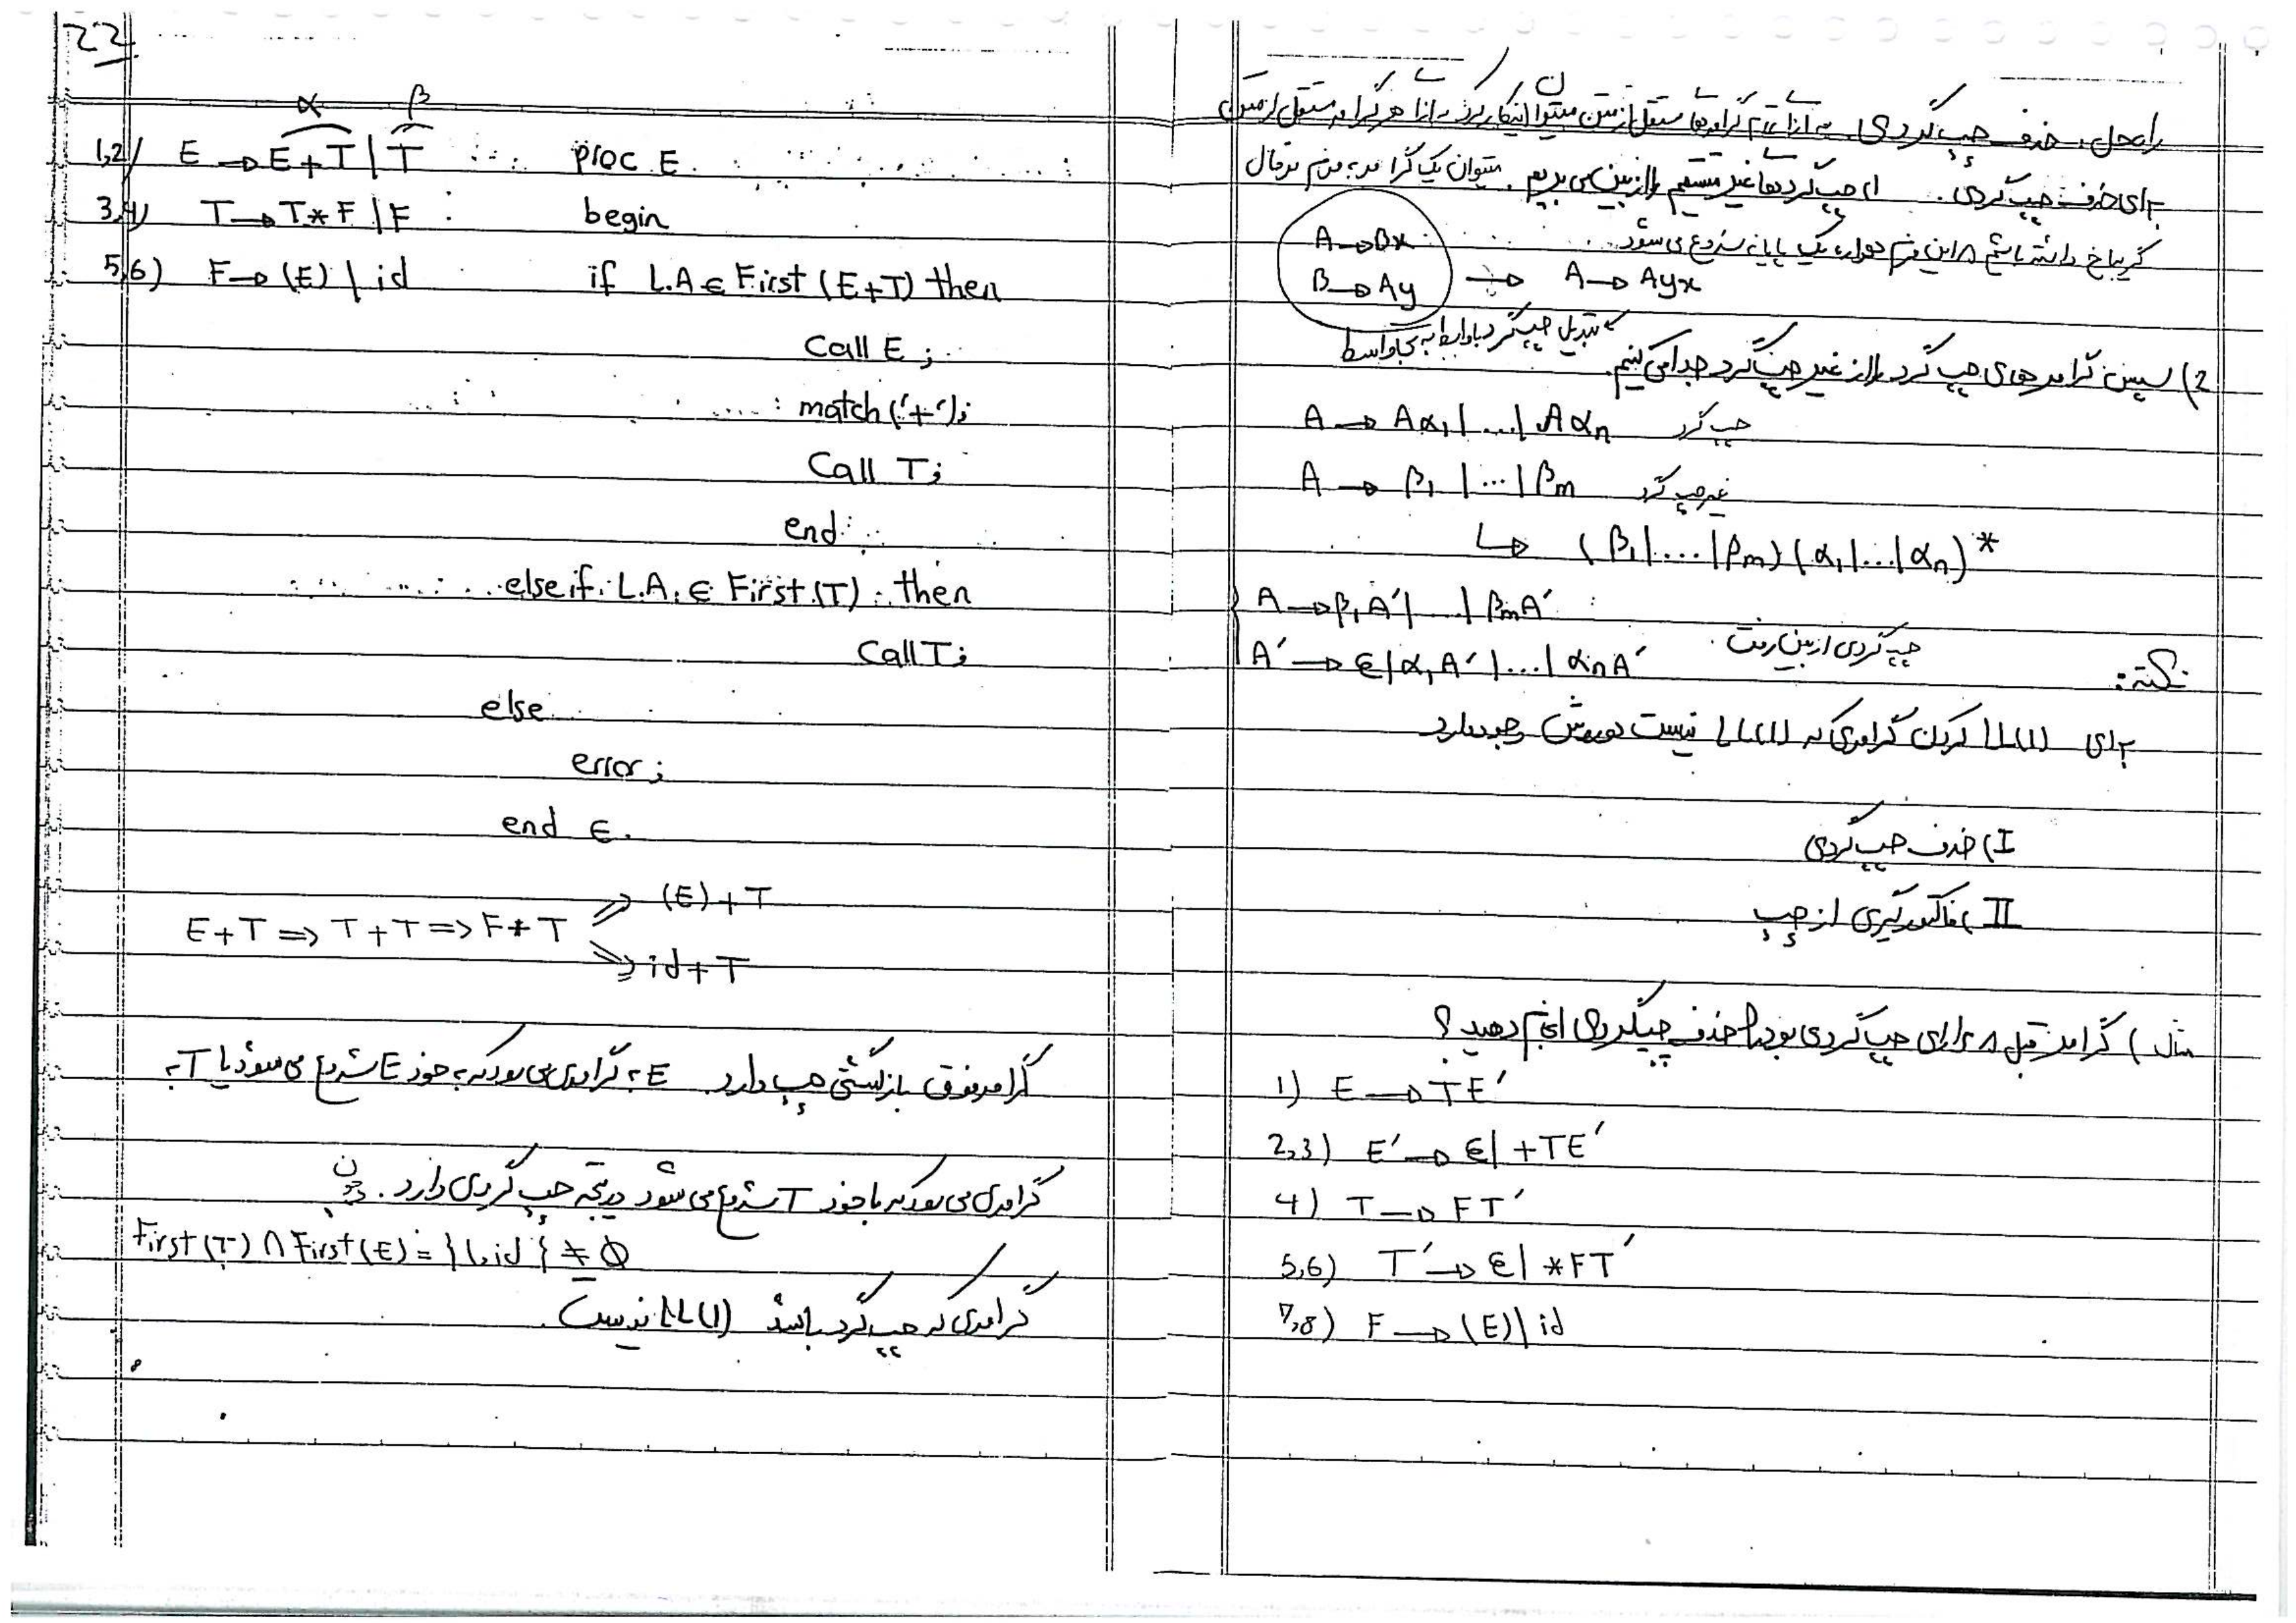 22
α β
1,2) E → E + T | T proc E
3,4) T → T * F | F begin
5,6) F → (E) | id if L.A ∈ First (E+T) then
Call E ;
match('+');
Call T;
end
else if L.A. ∈ First (T) then
Call T;
else
error;
end E.
E+T ⇒ T+T ⇒ F+T ⇒ (E)+T
⇒ id+T
گرامر فوق بازگشتی چپ دارد. E به گرامری می رود که به خود E شروع می شود یا T به
گرامری می رود که با خود T شروع می شود در نتیجه چپ گردی دارد. چون
First(T) ∩ First(E) = {(, id} ≠ ∅
گرامری که چپ گرد باشد LL(1) نیست.
راه حل، حذف چپ گردی به ازا تمام گرامرها مستقل از متن میتوان اینکار کرد. به ازا هر گرامر مستقل از متن
برای حذف چپ گردی. 1) چپ گردها غیر مستقیم را از بین می بریم. میتوان یک گرامر به فرم نرمال
گریباخ داشته باشیم در این فرم همواره یک پایانه شروع می شود.
A → Bx
B → Ay → A → Ayx
تبدیل چپ گرد باواسط به بلاواسط
2) سپس گرامرهای چپ گرد را از غیر چپ گرد جدا می کنیم.
A → Aα₁ | ... | Aαn چپ گرد
A → β₁ | ... | βm غیر چپ گرد
↳ (β₁ | .... | βm) (α₁ | ... | αn)*
A → β₁A' | ... | βmA'
A' → ε | α₁A' | ... | αnA' چپ گردی از بین رفت.
نکته:
برای LL(1) کردن گرامری که LL(1) نیست دو روش وجود دارد
I) حذف چپ گردی
II) فاکتورگیری از چپ
مثال) گرامر قبل دارای چپ گردی بود حذف چپگردی انجام دهید؟
1) E → TE'
2,3) E' → ε | +TE'
4) T → FT'
5,6) T' → ε | *FT'
7,8) F → (E) | id